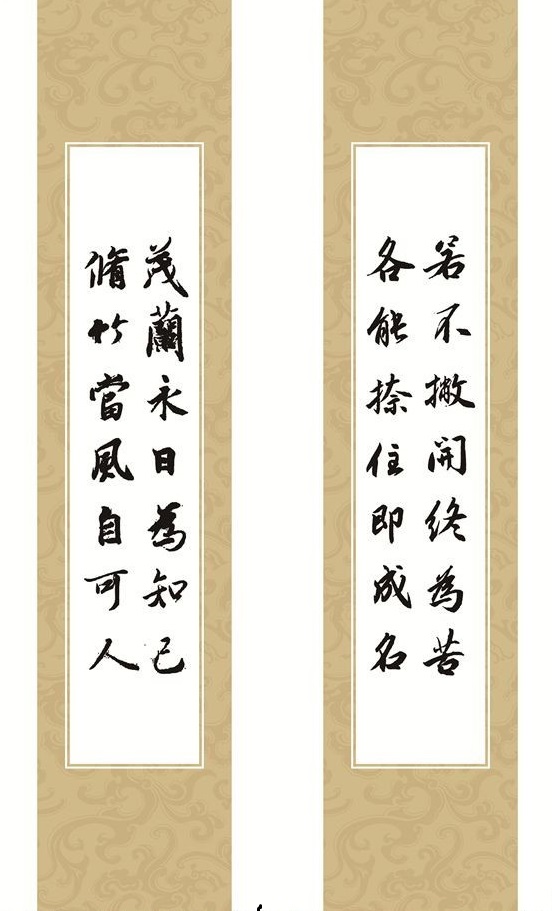 若不撇開終為苦
各能捺住即成名
茂蘭永日為知己
脩竹當風自可人